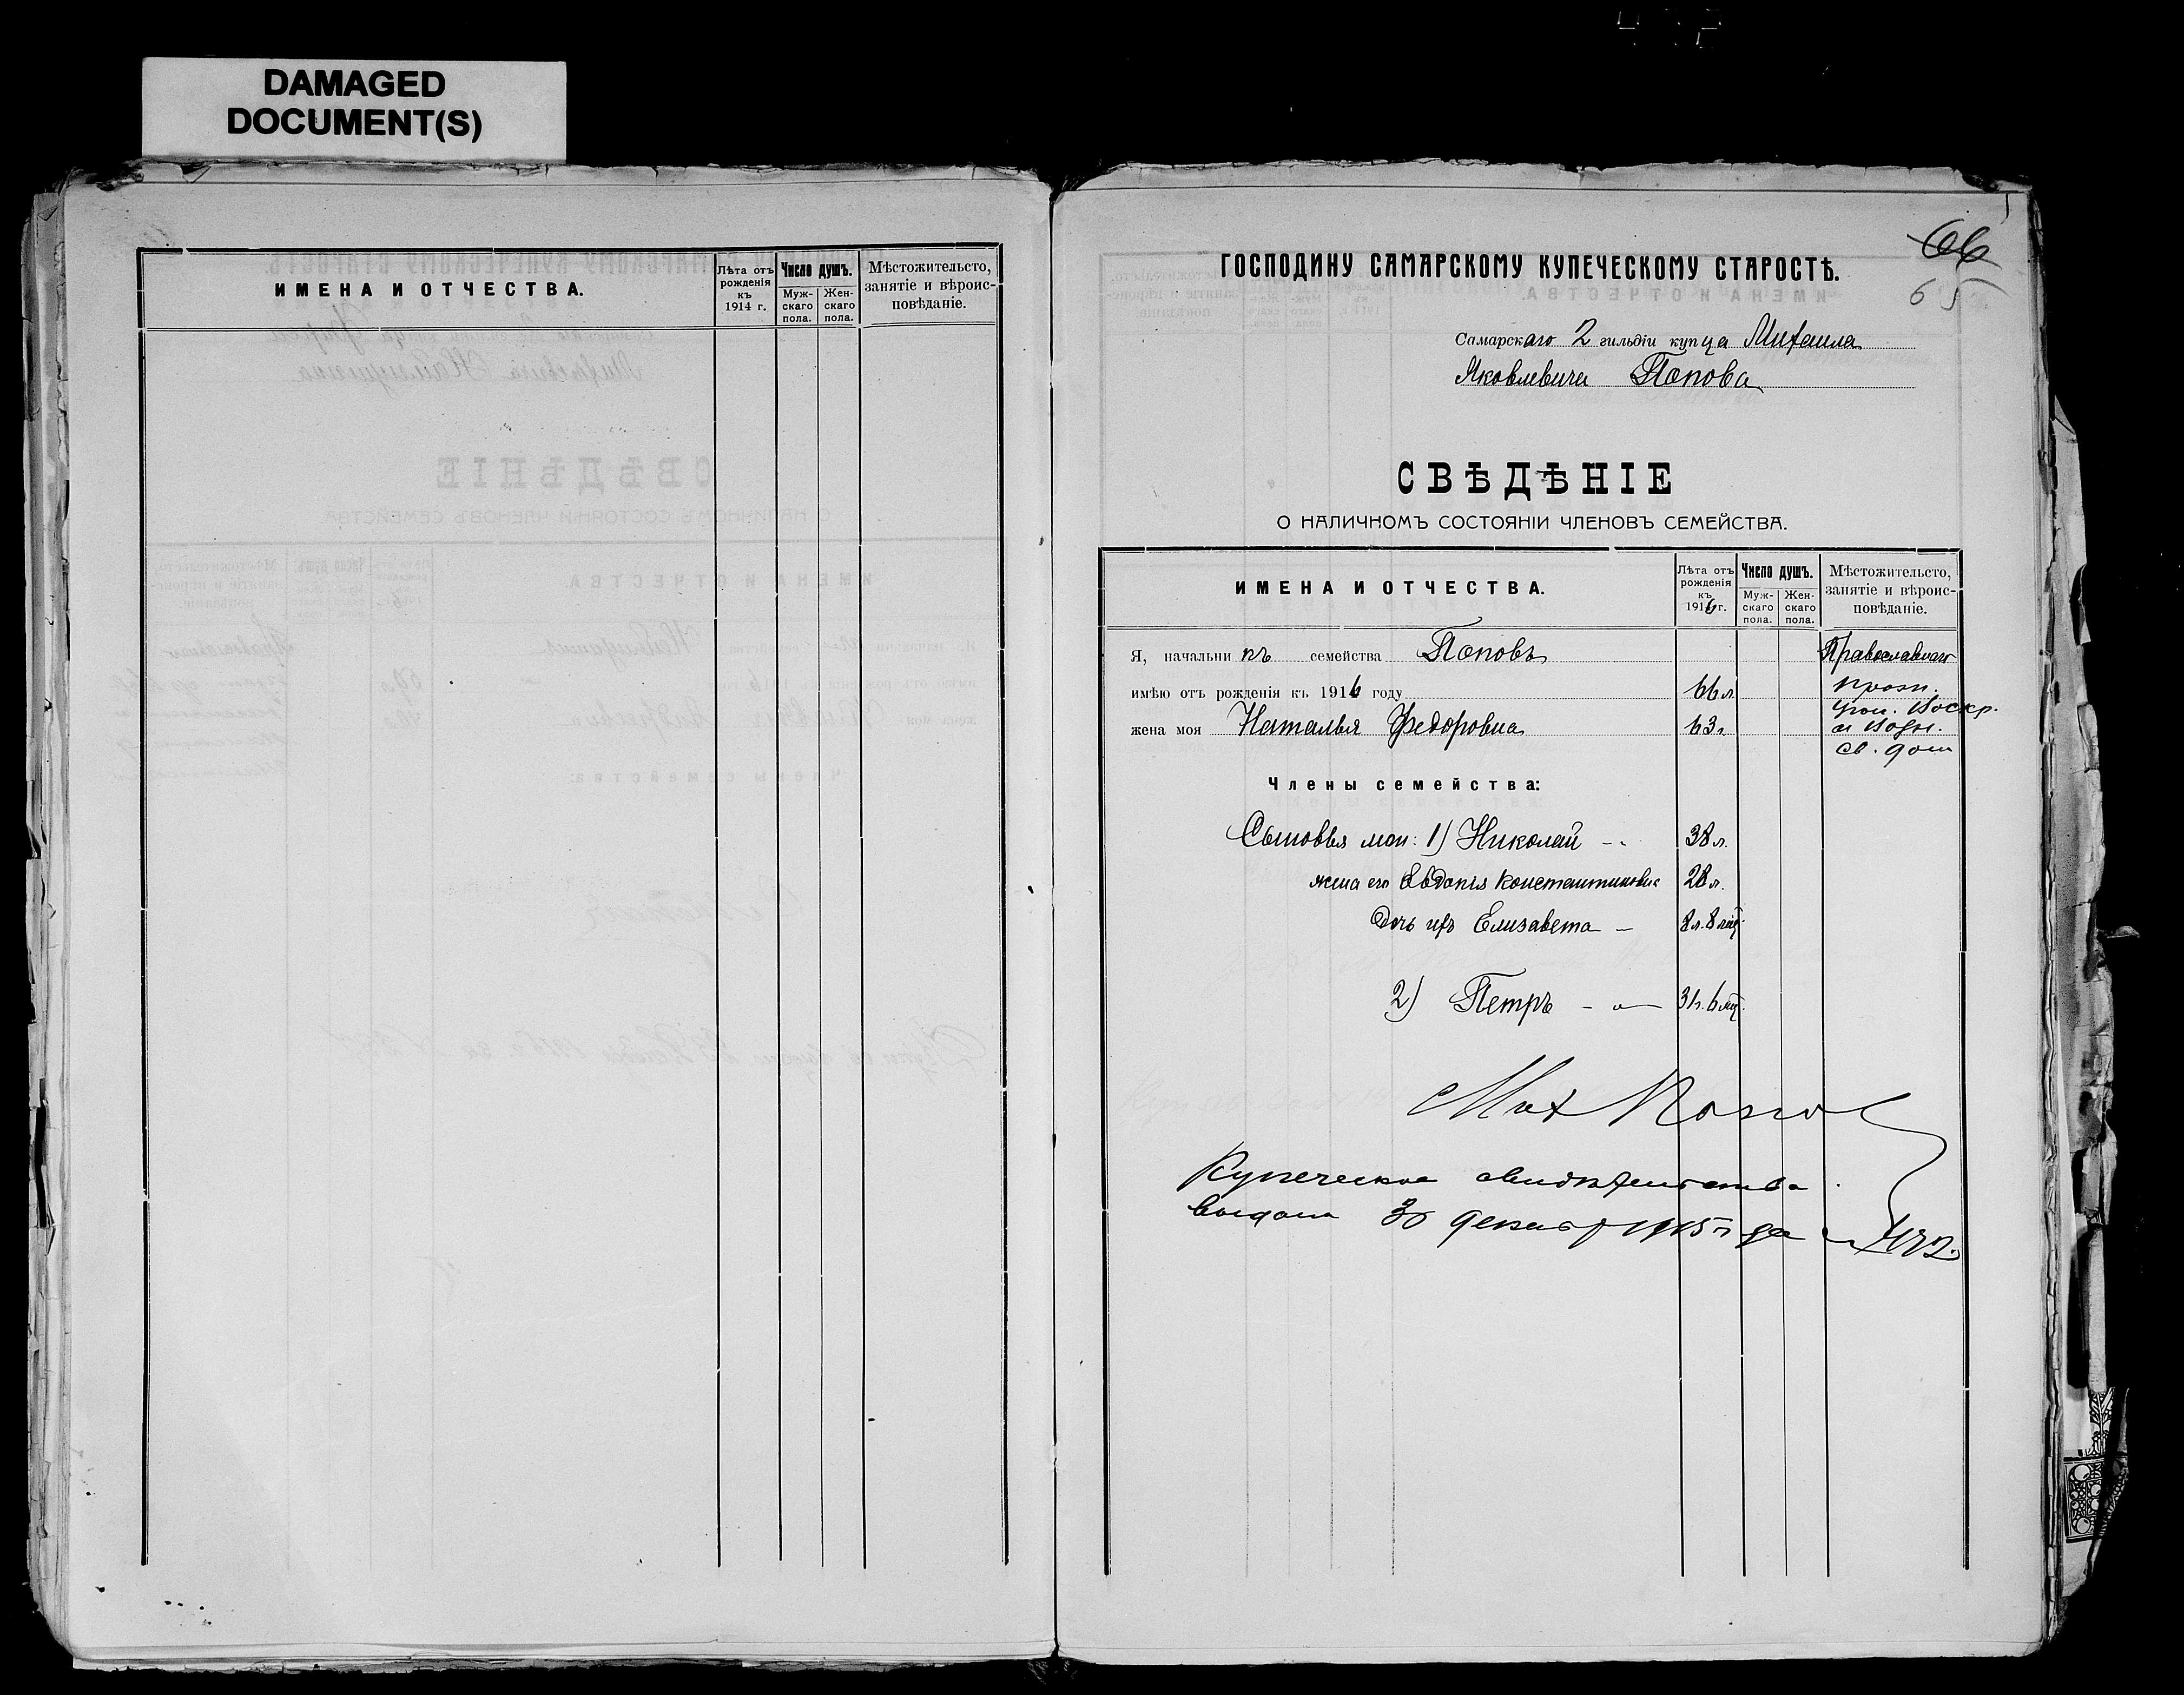 DAMAGED
DOCUMENT(S)
ИМЕНА И ОТЧЕСТВА.
Лѣта отъ рожденія къ 1914 г.
Число душъ.
Муж-скаго пола.
Жен-скаго пола.
Мѣстожительсто, занятіе и вѣроис-повѣданіе.
66
65
ГОСПОДИНУ САМАРСКОМУ КУПЕЧЕСКОМУ СТАРОСТѢ.
Самарскаго 2 гильдіи купца Михаила
Яковлевича Попова
СВѢДѢНІЕ
О НАЛИЧНОМЪ СОСТОЯНІИ ЧЛЕНОВЪ СЕМЕЙСТВА.
ИМЕНА И ОТЧЕСТВА.
Лѣта отъ рожденія къ 1916 г.
Число душъ.
Муж-скаго пола.
Жен-скаго пола.
Мѣстожительсто, занятіе и вѣроис-повѣданіе.
Я, начальникъ семейства Поповъ Православнаго
имѣю отъ рожденія къ 1916 году 66 л.
уг. Воскр.
жена моя Наталья Федоровна 63 г.
св. дом
Члены семейства:
Сыновья мои: 1) Николай 38 л.
жена его Евдокія Константиновна 28 л.
дочь ихъ Елизавета 8 мѣ.
2) Петръ 31 г. 6 мѣ.
Мих Попов
Купеческое свидѣтельство
выдано 30 декабр 1915 г за